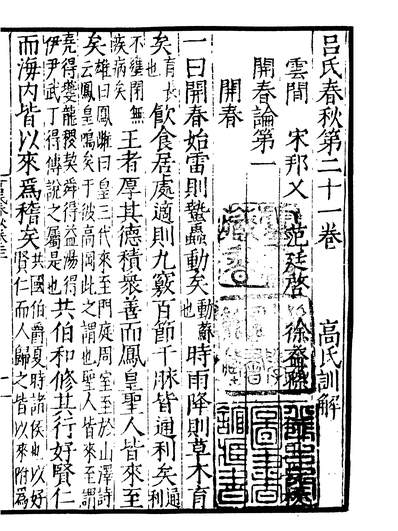 呂氏春秋第二十一卷　高氏訓解
雲間　宋邦乂　范廷啓　徐益孫
開春論第一
開春
一曰開春始雷則蟄蟲動矣動蘇時雨降則草木育
矣育長也飲食居處適則九竅百節千脉皆通利矣通
不壅閉無疾病矣王者厚其德積衆善而鳳皇聖人皆來至
矣雄曰鳳雌曰皇三代來至門庭周室至於山澤詩云鳳皇鳴矣于彼高岡此之謂也聖人皆來至謂
堯得夔龍稷契舜得益湯得伊尹武丁得傅說之屬是也共伯和修其行好賢仁
而海内皆以來爲稽矣共國伯爵夏時諸侯也以好賢仁而人歸之皆以來附爲